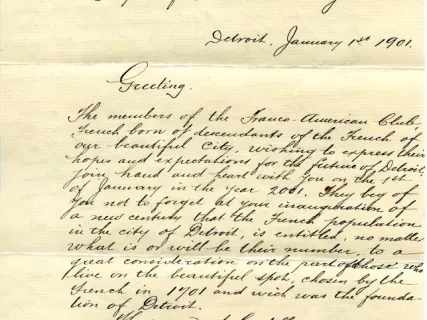 Detroit, January 1st 1901.
Greeting.
The members of the Franco-American Club
French born of descendants of the French of
our beautiful City, wishing to express their
hopes and expectations for the future of Detroit,
join hand and heart with you on the 1st
of January in the year 2001. They beg of
you not to forget at your inauguration of
a new century that the French population
in the city of Detroit, is entitled, no matter
what is or will be their number, to a
great consideration on the part of those who
live on the beautiful spot, chosen by the
French in 1701 and wich was the founda-
tion of Detroit.